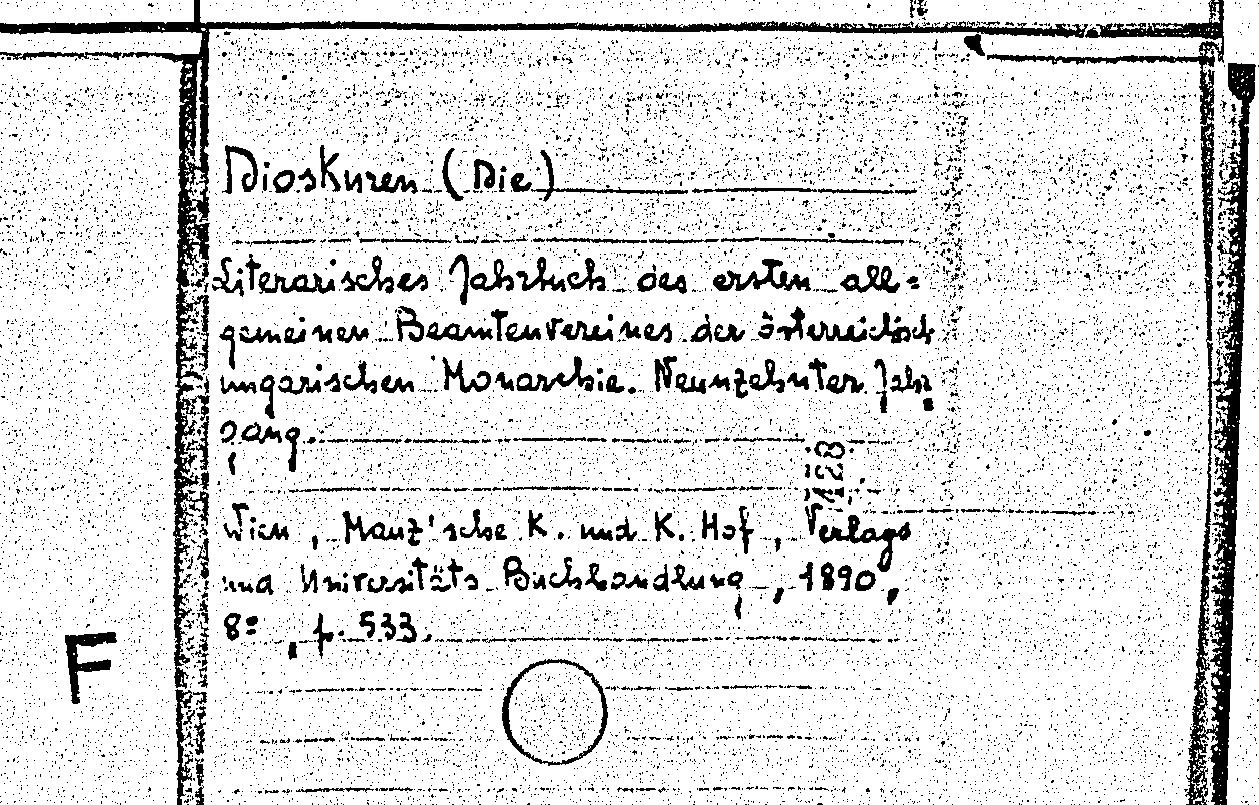 Dioskuren (Die)
Literarisches Jahrbuch des ersten all=
gemeinen Beamtenvereines der österreichisch
ungarischen Monarchie. Neunzehnter Jahr
gang.
Wien, Manz'sche K. und K. Hof, Verlags
und Universitäts Buchhandlung, 1890,
8º, p. 533.
F